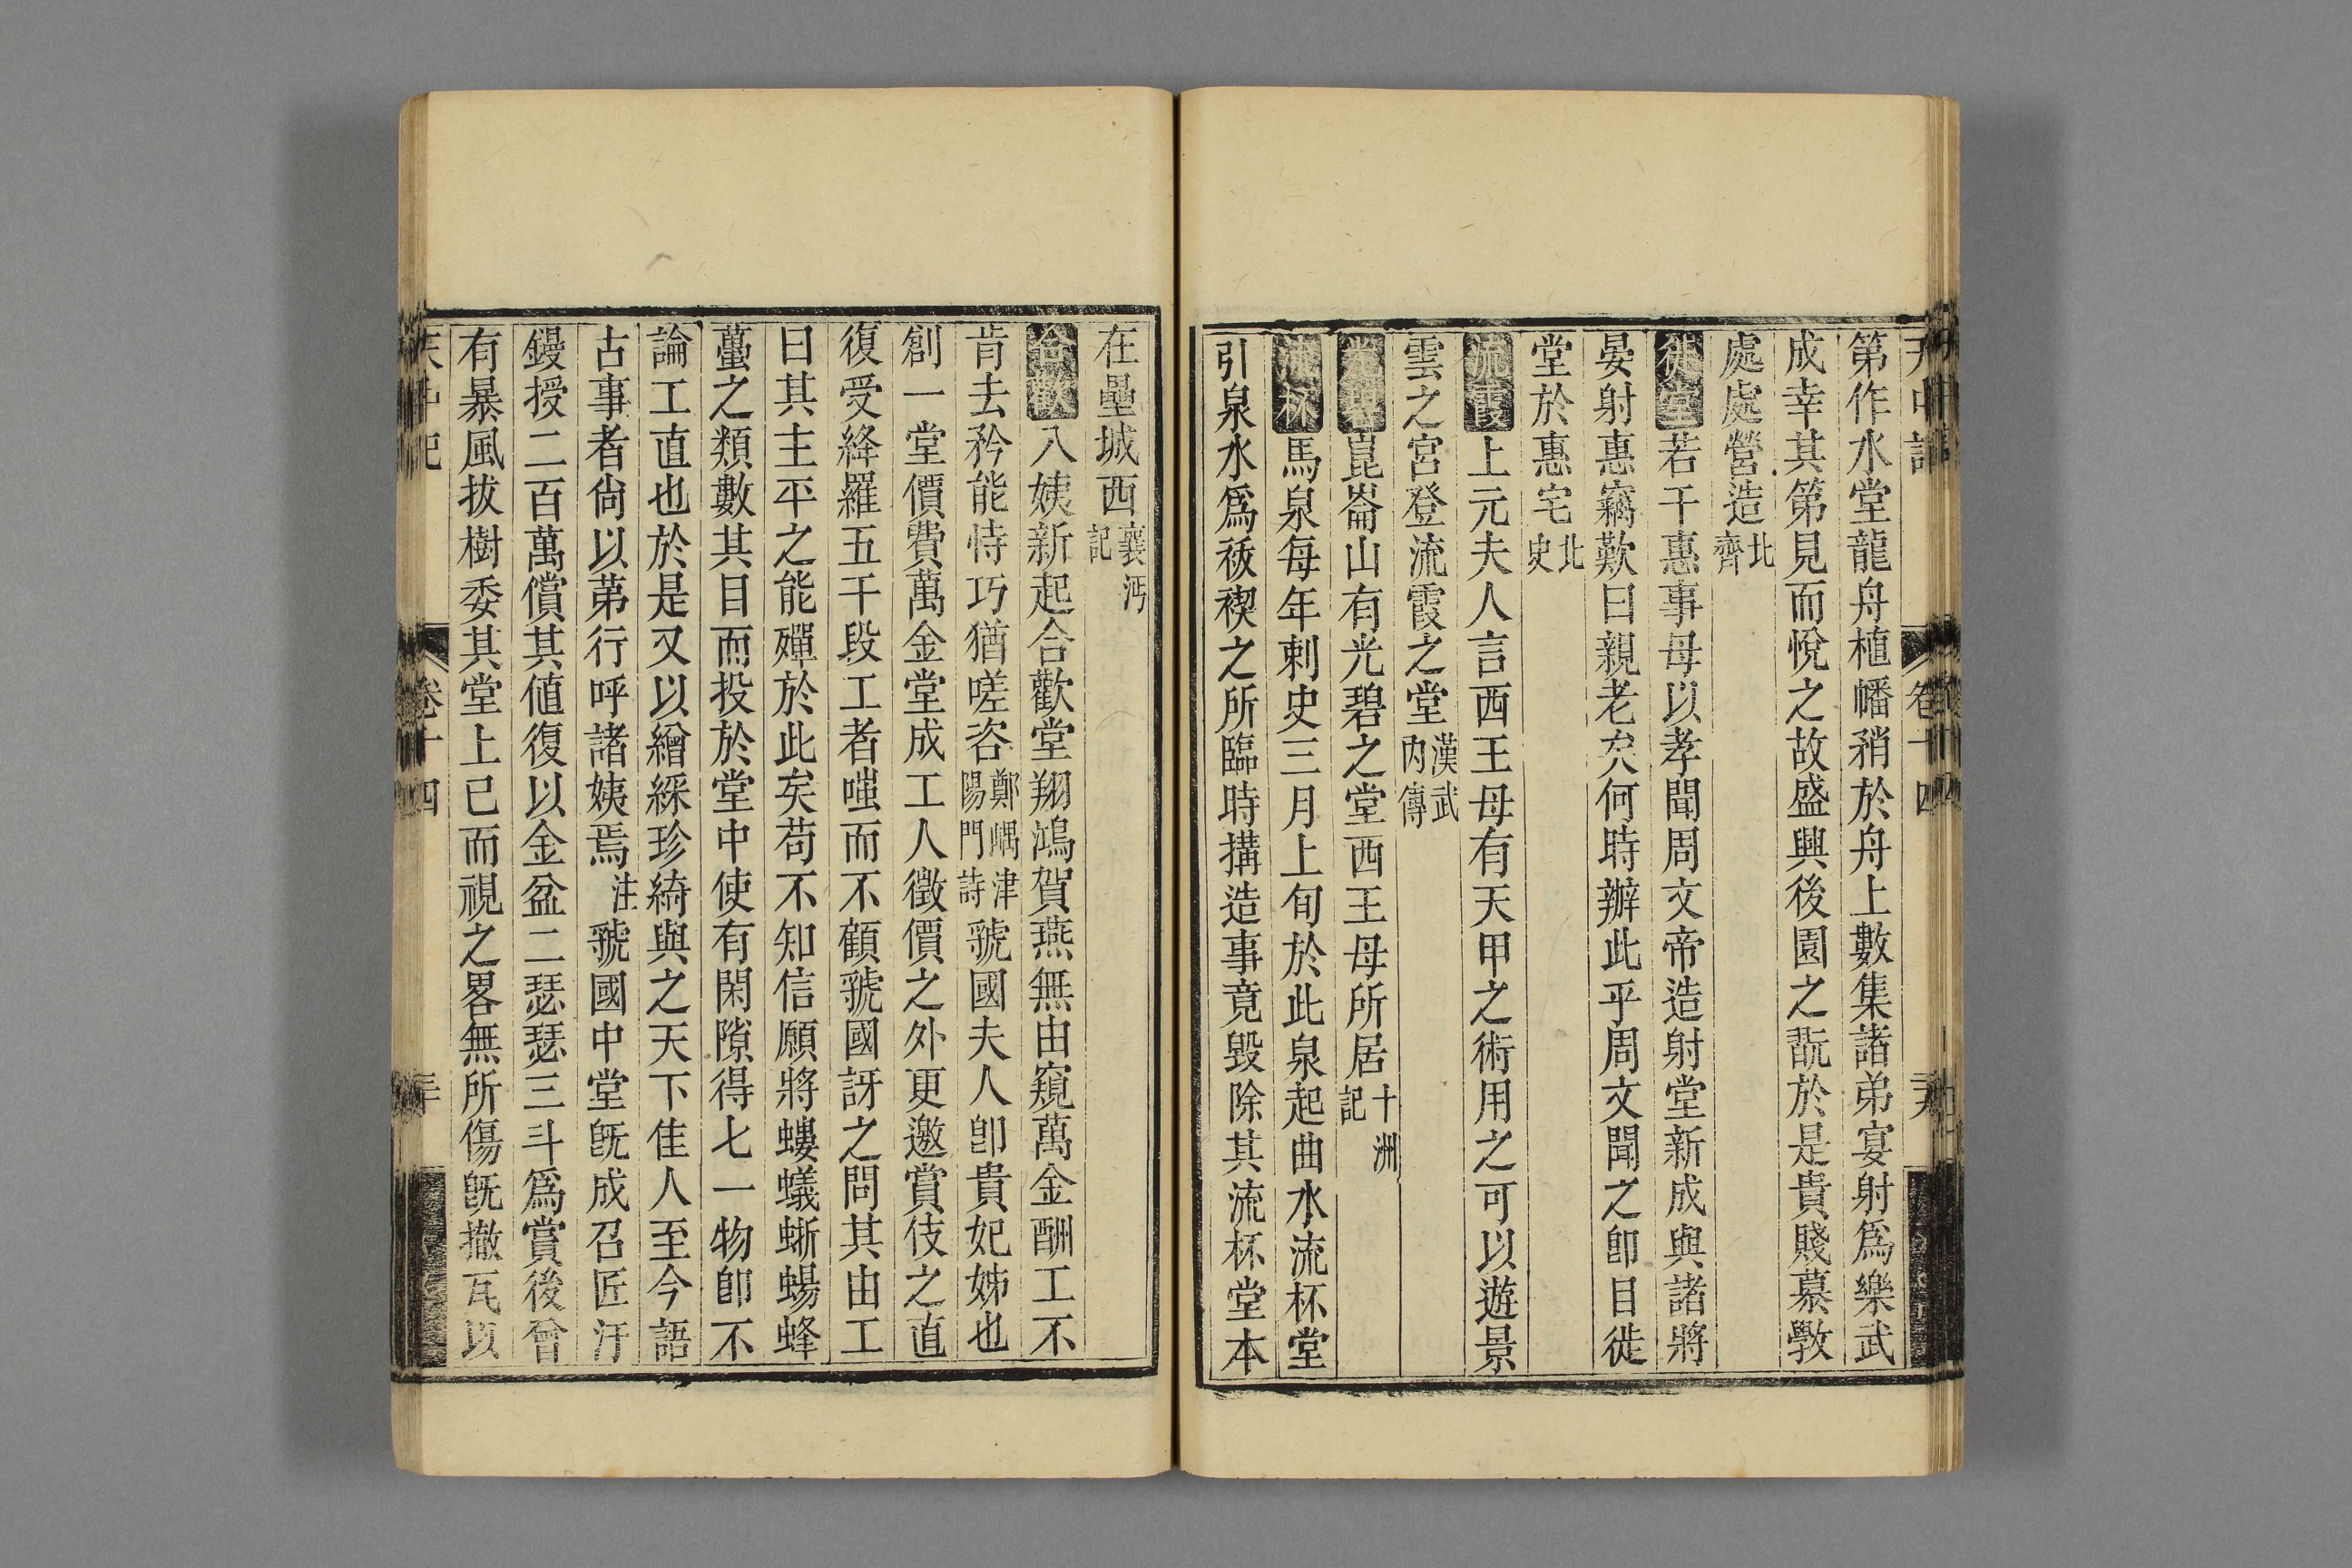 第作水堂龍舟植幡矟於舟上數集諸弟宴射爲樂武
成幸其第見而悅之故盛興後園之翫於是貴賤慕斆
處處營造北齊
徙堂若干惠事母以孝聞周文帝造射堂新成與諸將
晏射惠竊歎曰親老矣何時辦此乎周文聞之卽日徙
堂於惠宅北史
流霞上元夫人言西王母有天甲之術用之可以遊景
雲之宮登流霞之堂漢武內傳
光碧崑崙山有光碧之堂西王母所居十洲記
流杯馬泉每年刺史三月上旬於此泉起曲水流杯堂
引泉水爲祓禊之所臨時搆造事竟毀除其流杯堂本
在壘城西襄沔記
合歡八姨新起合歡堂翔鴻賀燕無由窺萬金酬工不
肯去矜能恃巧猶嗟咨鄭嵎津陽門詩虢國夫人卽貴妃姊也
創一堂價費萬金堂成工人徵價之外更邀賞伎之直
復受絳羅五千段工者嗤而不顧虢國訝之問其由工
曰其主平之能殫於此矣苟不知信願將螻蟻蜥蜴蜂
蠆之類數其目而投於堂中使有閑隙得七一物卽不
論工直也於是又以繒綵珍綺與之天下佳人至今語
古事者尙以第行呼諸姨焉注虢國中堂旣成召匠汙
鏝授二百萬償其値復以金盆二瑟瑟三斗爲賞後曾
有暴風拔樹委其堂上已而視之畧無所傷旣撤瓦以
天中記 卷十四